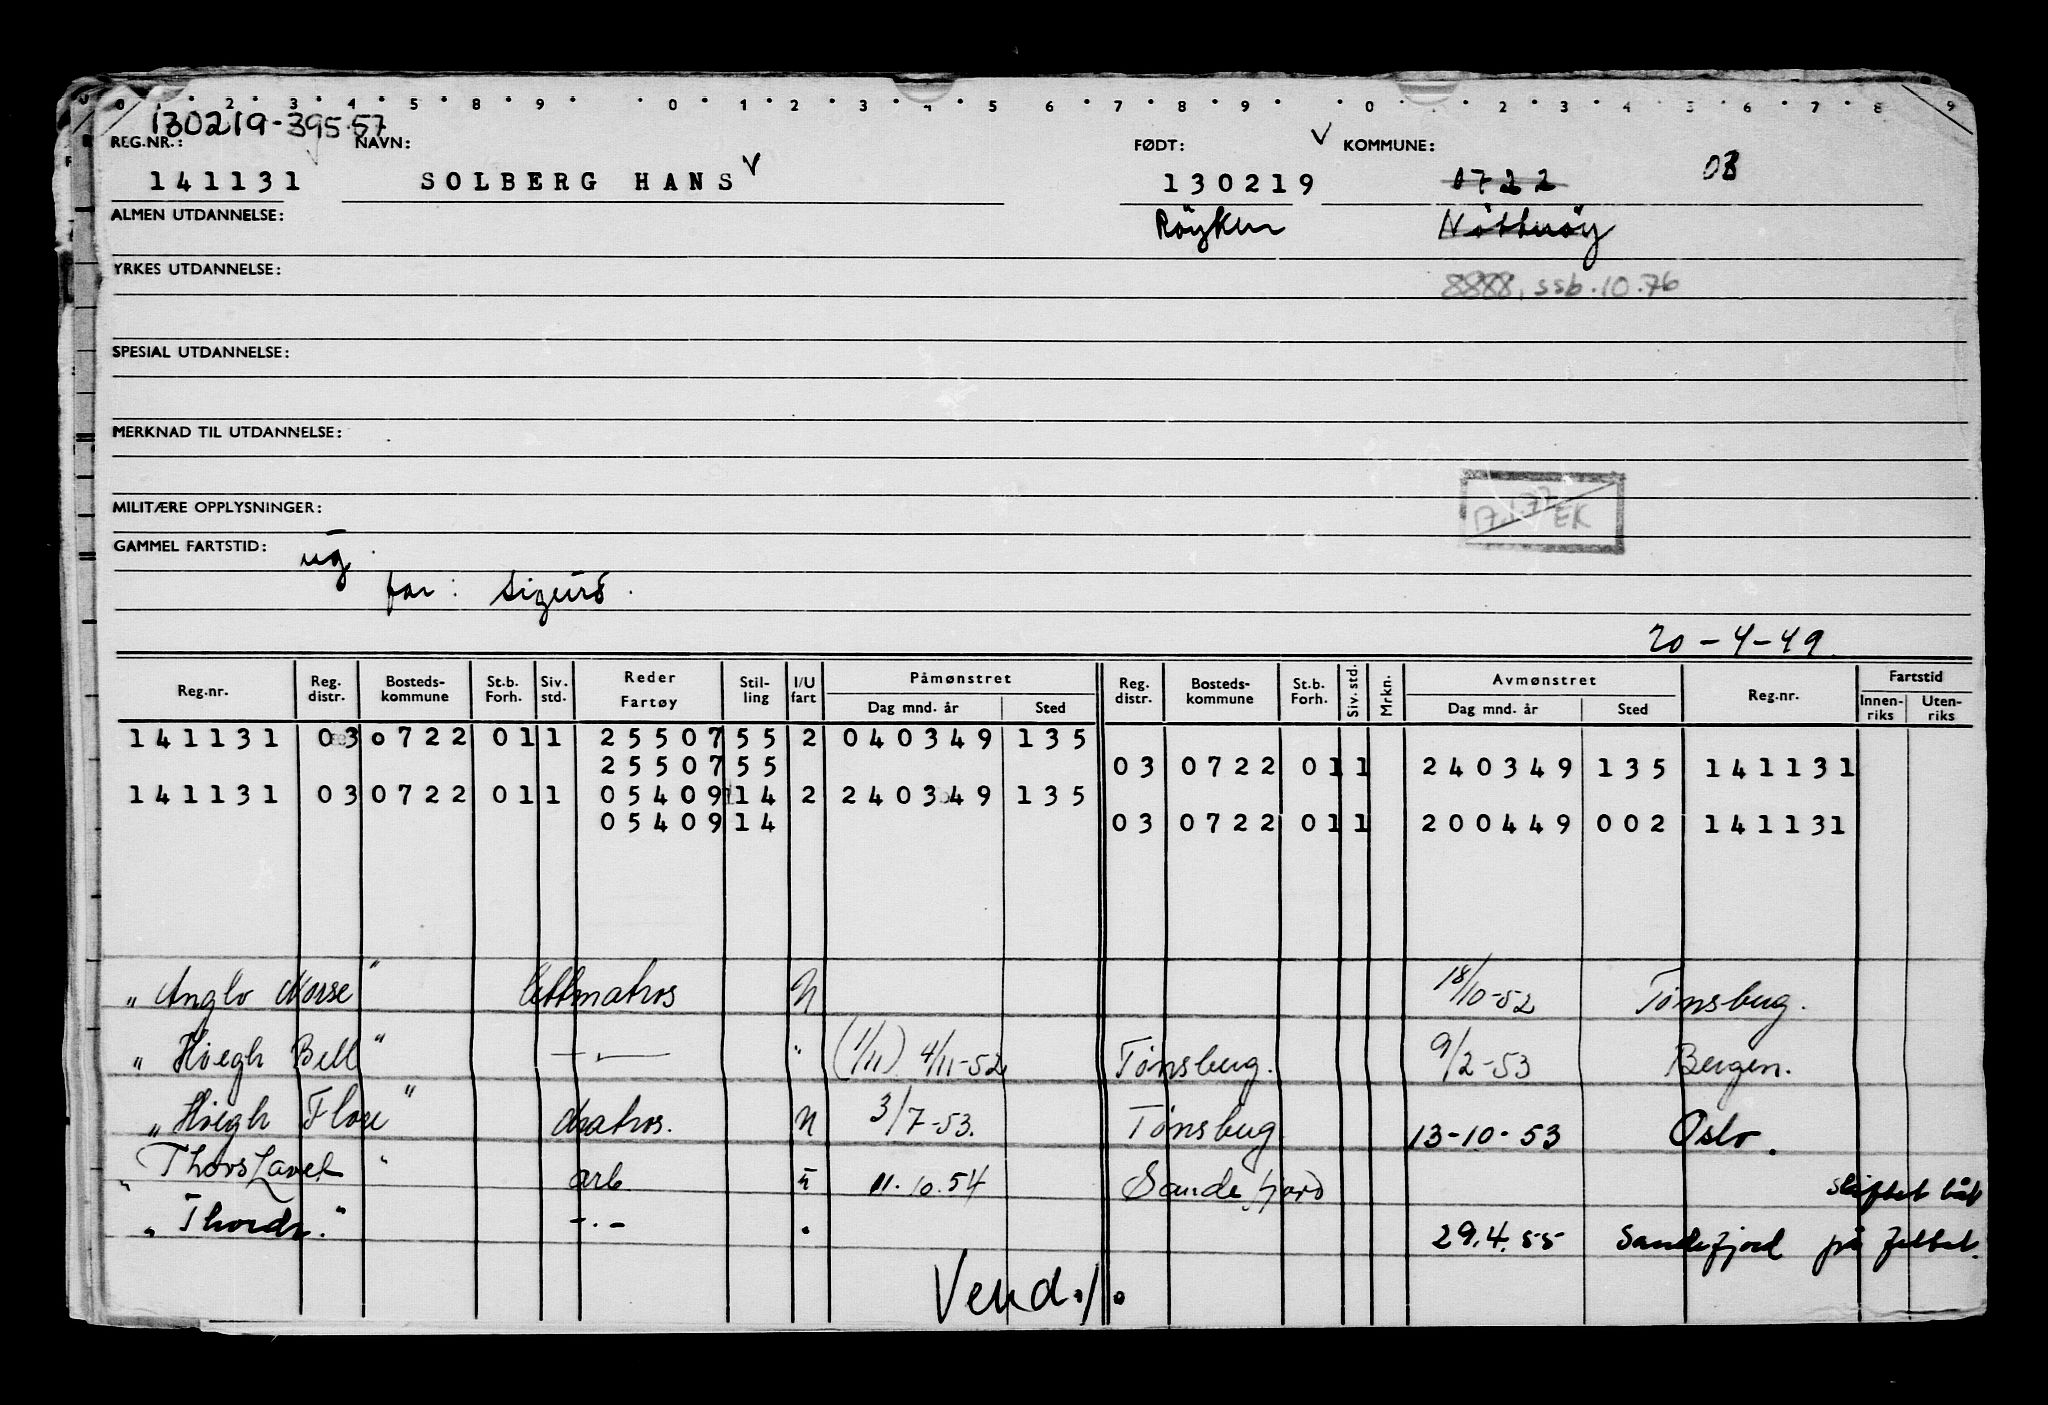 0 . 2 . 3 . 4 . 5 . 8 . 9 . . 0 . 1 . 2 . 3 . 4 . 5 6 . 7 . 8 . 9 . . 0 . . 2 . 3 . 4 . 5 . 6 . 7 . 8 . 9
130219-395.57
REG.NR.: NAVN: FØDT: KOMMUNE:
141131 SOLBERG HANS 130219 0722 03
ALMEN UTDANNELSE: Röyken Nötteröy
YRKES UTDANNELSE:
8888, ssb.10.76
SPESIAL UTDANNELSE:
MERKNAD TIL UTDANNELSE:
MILITÆRE OPPLYSNINGER: 17.1.77 EK
GAMMEL FARTSTID: ug
far: Sigurd.
20-4-49.
Reg.nr. Reg. distr. Bosteds-kommune St.b. Forh. Siv. std. Reder Fartøy Stil-ling I/U fart Påmønstret Dag mnd. år Sted Reg. distr. Bosteds-kommune St.b. Forh. Siv. std. Mrkn. Avmønstret Dag mnd. år Sted Reg.nr. Fartstid Innen-riks Uten-riks
141131 03 0722 01 1 25507 55 2 040349 135
25507 55 03 0722 01 1 240349 135 141131
141131 03 0722 01 1 05409 14 2 240349 135
05409 14 03 0722 01 1 200449 002 141131
"Anglo Norse" lettmatros U 18/10-52 Tønsberg.
"Höegh Bell" —"— " (1/11) 4/11-52 Tønsberg. 9/2-53 Bergen.
"Höegh Flore" matros. U 3/7-53. Tønsberg. 13-10-53 Oslo.
"Thorshavet" arb. U 11.10.54 Sandefjord skiftet båt
"Thordr." -.- " 29.4.55 Sandefjord på feltet.
Vend./.